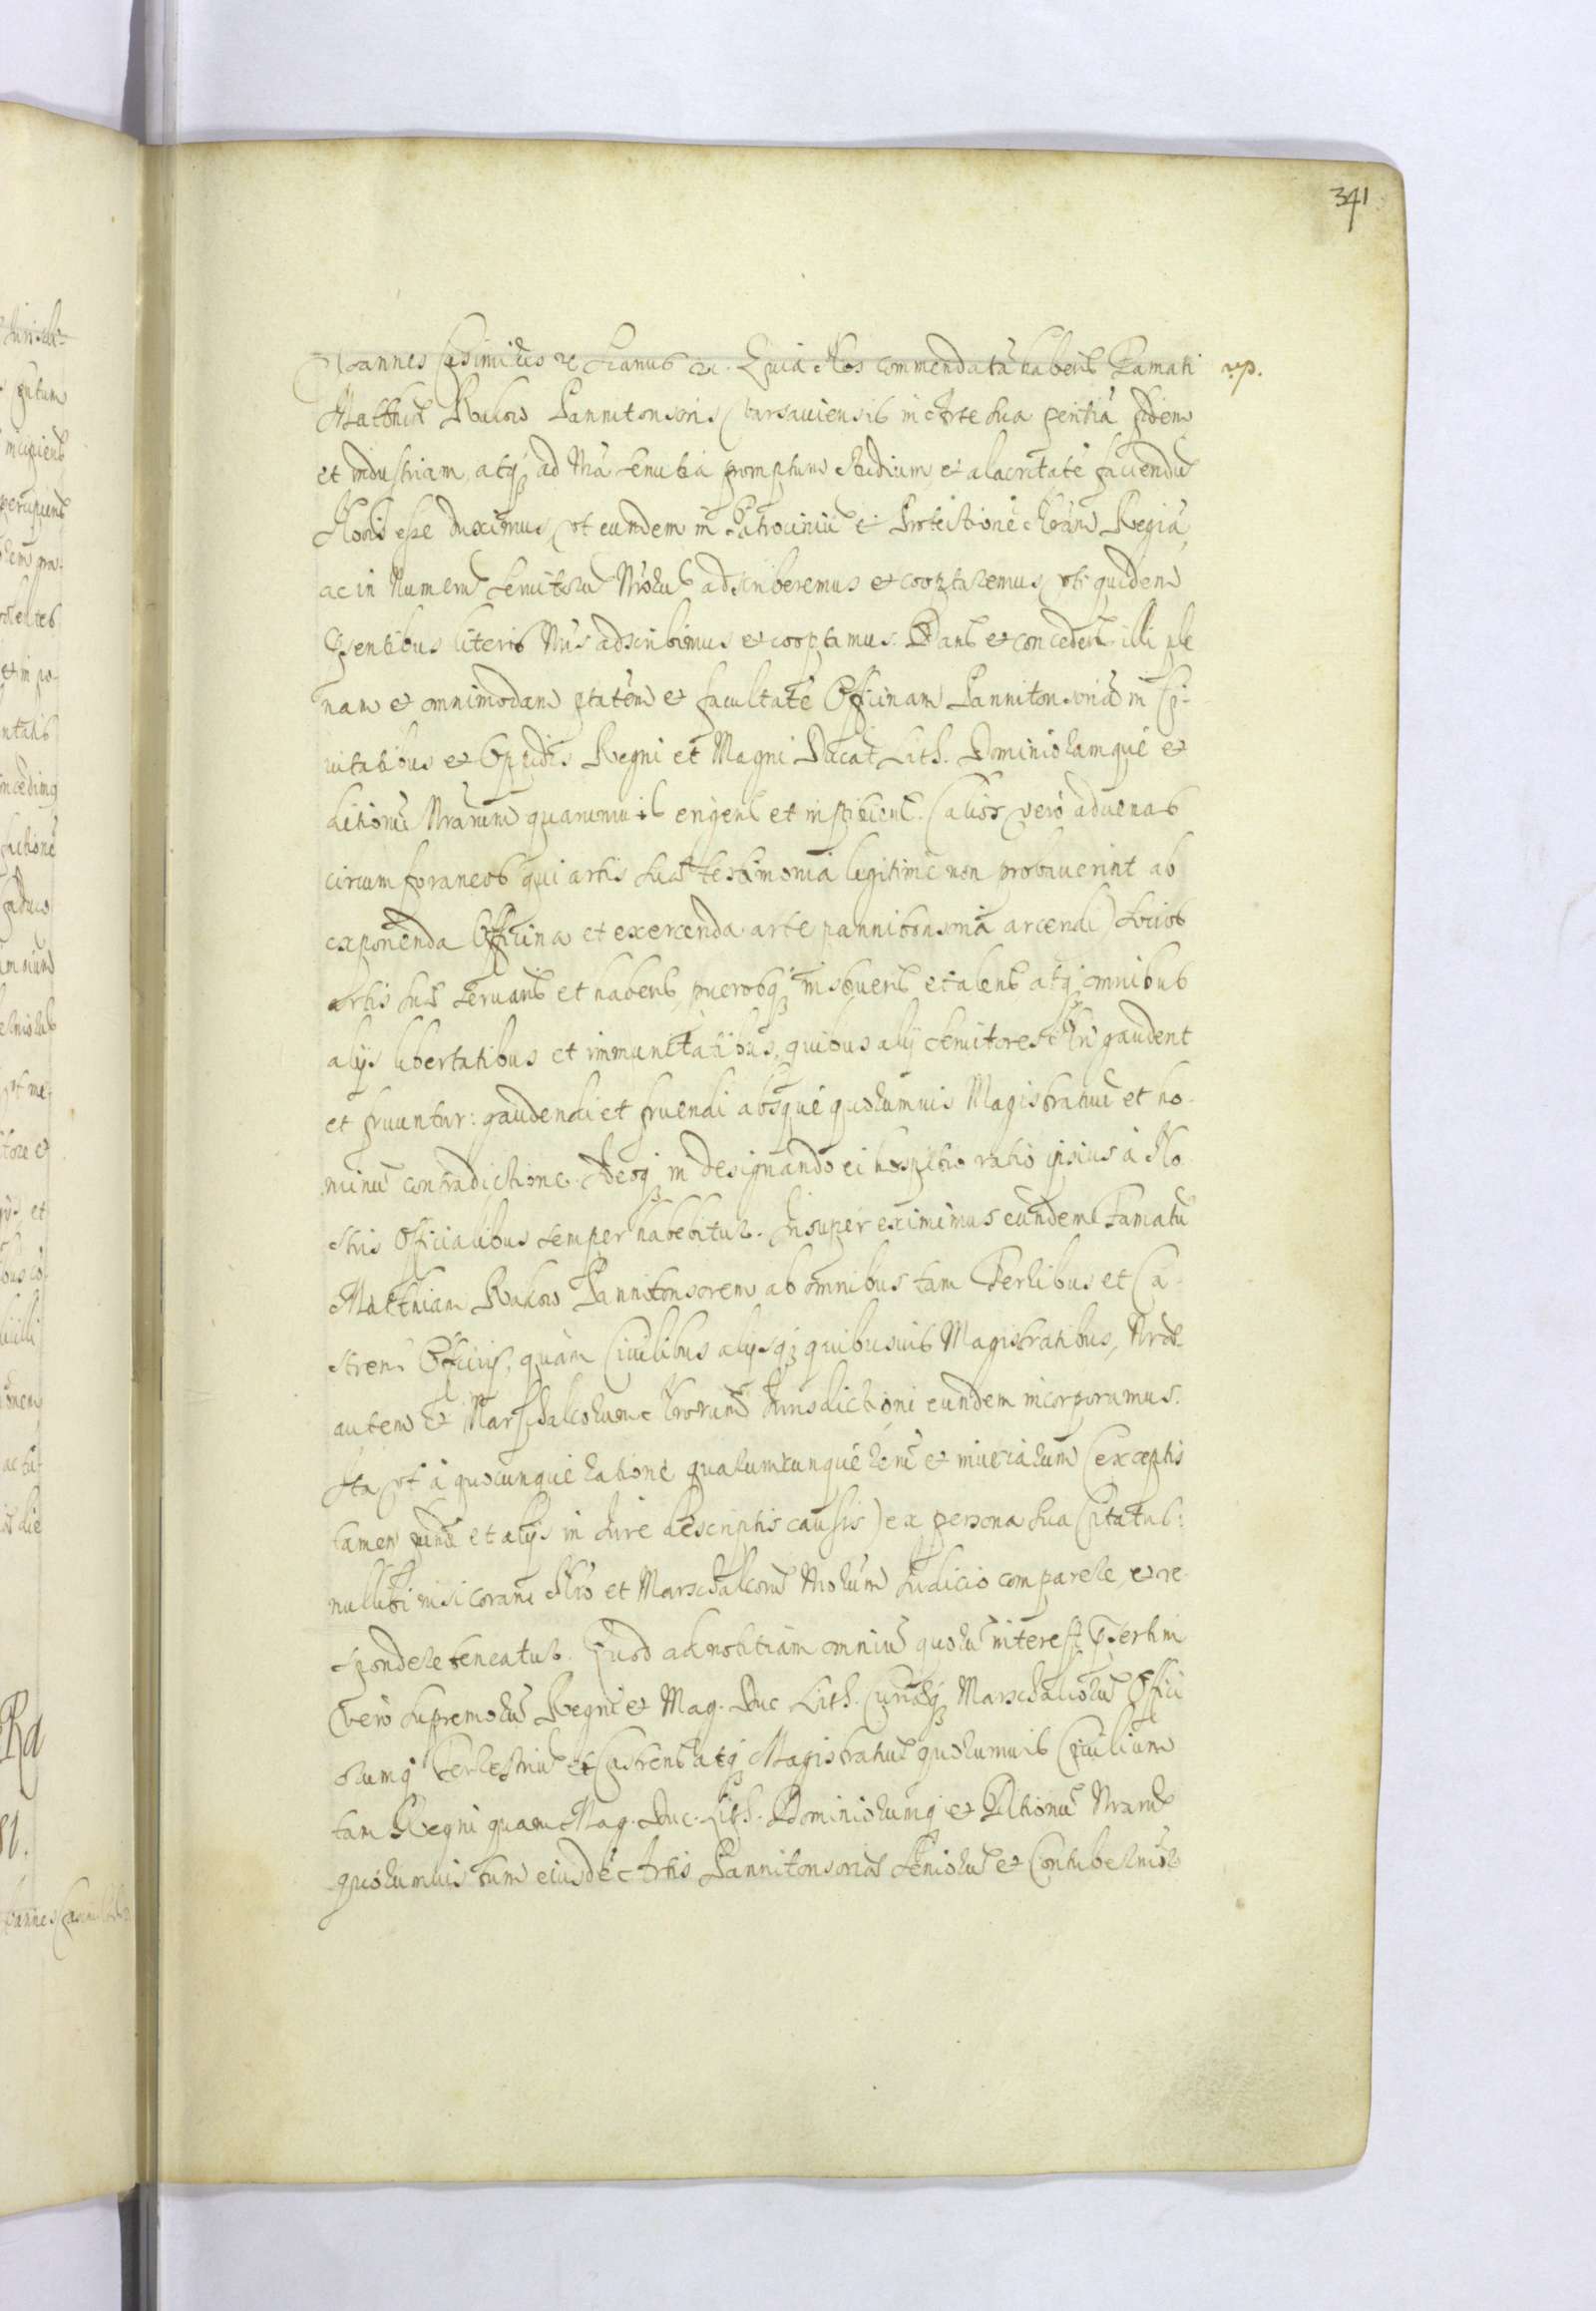 341
Ioannes Casimirus etc. Quia Nos commendatã habentes Famati np.
Matthiæ Rukow Pannitonsoris Varsauiensis in Arte sua peritiã fidem
et industriam, atq ad Nrã seruitia promptum studium et alacritatẽ faciendũ
Nobis esse duximus, vt eundem in Patrociniũ et Protectionẽ Nram Regiã,
ac in numerũ seruitorũ Nrorũ adscriberemus et cooptaremus, vti quidem
Psentibus literis Nris adscribimus et cooptamus. Dantes et conceden illi ple
nam et omnimodam ptatem et facultatẽ Officinam Pannitonsoriã in Ci-
uitatibus et Oppidis Regni et Magni Ducat Lith. Dominiorumque et
Ditionũ Nrarum quarumuis erigen et instituen. (alios vero aduenas
circumforaneos qui artis suæ testimonia legitime non probauerint ab
exponenda Officina et exercenda arte pannitonsoria arcendi) Socios
artis suæ seruand et habend, puerosq instruend et alend atq omnibus
alijs libertatibus et immunitatibus, quibus alij seruitores Nri gaudent
et fruuntur: gaudendi et fruendi absque quorumuis Magistratuũ et ho-
minũ contradictione. Adeoq in designando ei hospitio ratio ipsius à No
stris Officialibus semper habebitur. Insuper eximimus eundem Famatũ
Matthiam Rukow Pannitonsorem ab omnibus tam Terribus et Ca-
stren Officijs, quàm Ciuilibus alijsq quibusuis Magistratibus, Nræ
autem et Marschalcorum Nrorum Iurisdictioni eundem incorporamus.
Ita vt à quocunque ratione qualumcunque rerũ et iniuriarum (exceptis
tamen fundi et alijs in Iure descriptis causis) ex persona sua Citatus:
nullibi nisi coram Nro et Marschalcorũ Nrorum Iudicio comparere, et re
spondere teneatur. Quod ad notitiam omniũ quorũ interest Psertim
vero supremorũ Regni et Mag. Duc Lith. Curiæq Marschalcorũ Offici
orumq Terrestriũ et Castrens atq Magistratuũ quorumuis Ciuilium
tam Regni quam Mag. Duc. Lith. Dominiorumq et Ditionũ Nrarũ
quorumuis tum eiusdẽ Artis Pannitonsoriæ Seniorũ et Contubernior